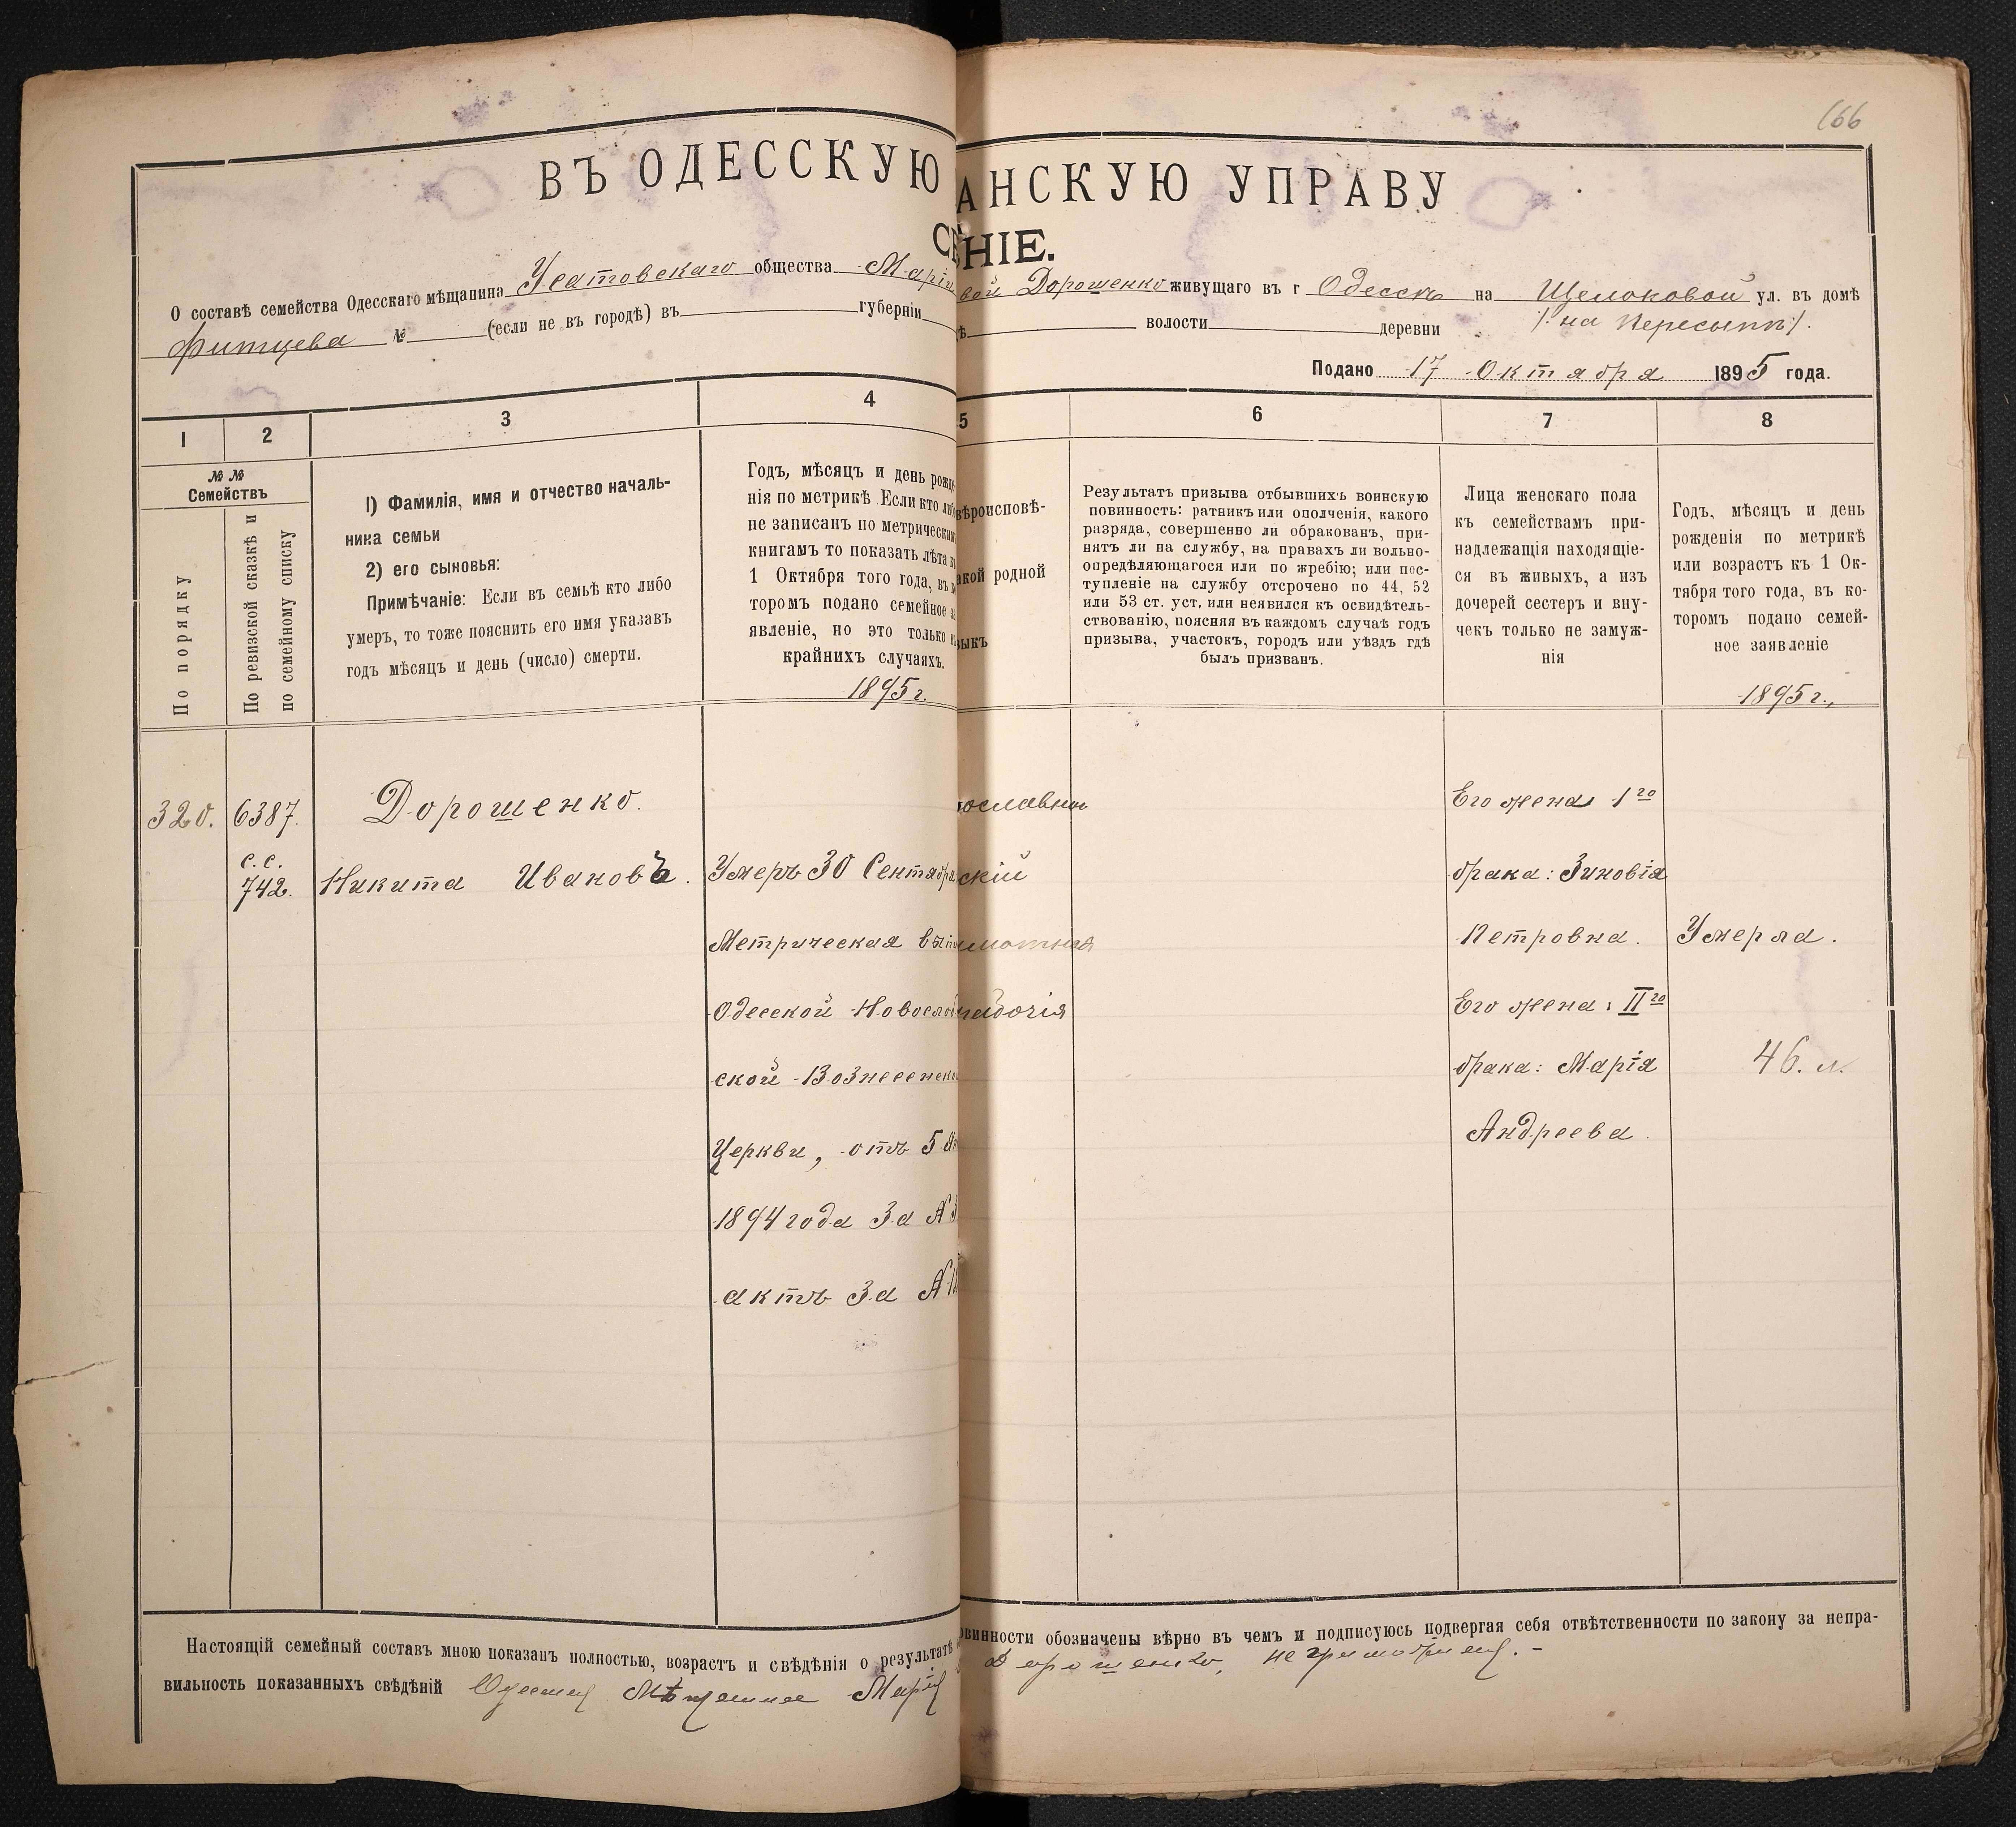 166
ВЪ ОДЕССКУЮ АНСКУЮ УПРАВУ
НІЕ.
О составѣ семейства Одесскаго мѣщанина Усатовскаго общества Марі вой Дорошенко живущаго въ г Одессѣ на Щелоковой ул. въ домѣ
Фитцева № (если не въ городѣ) въ губерніи волости деревни /: на Пересыпѣ /.
Подано 17 Октября 1895 года.
1 2 3 4 5 6 7 8
№ №
Семействъ
По порядку
По ревизской сказкѣ и
по семейному списку
1) Фамилія, имя и отчество началь-
ника семьи
2) его сыновья:
Примѣчаніе: Если въ семьѣ кто либо
умеръ, то тоже пояснить его имя указавъ
годъ мѣсяцъ и день (число) смерти.
Годъ, мѣсяцъ и день рожде-
нія по метрикѣ Если кто либо
не записанъ по метрическим
книгамъ то показать лѣта к
1 Октября того года, въ к
торомъ подано семейное за
явленіе, но это только в
крайнихъ случаяхъ.
1895 г.
вѣроисповѣ-
акой родной
зыкъ
Результатъ призыва отбывшихъ воинскую
повинность: ратникъ или ополченія, какого
разряда, совершенно ли обракованъ, при-
нятъ ли на службу, на правахъ ли вольно-
опредѣляющагося или по жребію; или пос-
тупленіе на службу отсрочено по 44, 52
или 53 ст. уст, или неявился къ освидѣтель-
ствованію, поясняя въ каждомъ случаѣ годъ
призыва, участокъ, городъ или уѣздъ гдѣ
былъ призванъ.
Лица женскаго пола
къ семействамъ при-
надлежащія находящіе-
ся въ живыхъ, а изъ
дочерей сестеръ и вну-
чекъ только не замуж-
нія
Годъ, мѣсяцъ и день
рожденія по метрикѣ
или возрастъ къ 1 Ок-
тября того года, въ ко-
торомъ подано семей-
ное заявленіе
1895 г.,
320.
6387.
с. с.
742.
Дорошенко.
Никита Ивановъ.
Умеръ 30 Сентября
Метрическая вып
Одесской Новослоб
ской Вознесенско
Церкви, отъ 5
1894 года за №
актъ за №
ославно
скій
мотная
рабочія
Его жена 1го
брака: Зиновія
Петровна. Умерла.
Его жена: IIго
брака: Марія 46. л.
Андреева.
Настоящій семейный составъ мною показанъ полностью, возрастъ и свѣдѣнія о результатѣ овинности обозначены вѣрно въ чемъ и подписуюсь подвергая себя отвѣтственности по закону за непра-
вильность показанныхъ свѣдѣній Одесская Мѣщанка Марія Дорошенко, неграмотная. -